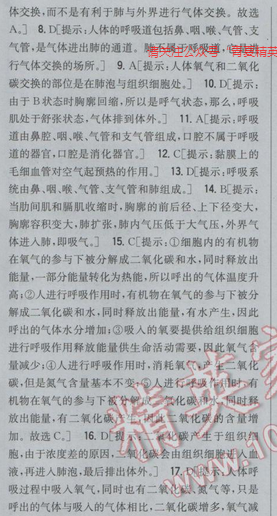 体交换,而不是有利于肺与外界进行气体交换。故选
A。] 8. D[提示:人体的呼吸道包括鼻、咽、喉、气管、支
气管,是气体进出肺的通道。肺
行气体交换的场所。] 9. A[提示:人体氧气和二氧化
碳交换的部位是在肺泡与组织细胞处。] 10. D[提示:
由于B状态时胸廓回缩,所以是呼气状态,那么,呼吸
肌处于舒张状态,气体排到体外。] 11. A[提示:呼吸
道由鼻腔、咽、喉、气管和支气管组成,口腔不属于呼吸
道的器官,口腔是消化器官。] 12. C[提示:黏膜上的
毛细血管对空气起预热的作用。] 13. D[提示:呼吸系
统由鼻、咽、喉、气管、支气管和肺组成。] 14. B[提示:
当肋间肌和膈肌收缩时,胸廓的前后径、上下径变大,
胸廓容积变大,肺扩张,肺内气压低于大气压,外界气
体进入肺,即吸气。] 15. C[提示:①细胞内的有机物
在氧气的参与下被分解成二氧化碳和水,同时释放出
能量,一部分能量转化为热能,所以呼出的气体温度升
高;②人进行呼吸作用时,有机物在氧气的参与下被分
解成二氧化碳和水,同时释放出能量,有水产生,因此
呼出的气体水分增加;③吸入的氧要提供给组织细胞
进行呼吸作用释放能量供生命活动需要,因此氧气含
量减少;④人进行呼吸作用时,消耗氧气,产生二氧化
碳,但是氮气含量基本不变;⑤人进行呼吸作用时,有
机物在氧气的参与下被分解成二氧化碳和水,同时释
放出能量,有二氧化碳产生,因此二氧化碳的含量增
加。故选C。] 16. D[提示:二氧化碳产生于组织细
胞,由于浓度差的原因,二氧化碳会由组织细胞进入血
液,再进入肺泡,最后排出体外。] 17. D[提示:人体呼
吸过程中吸入氧气,同时也有二氧化碳、氮气等,只是
呼出的气体与吸入的气体相比,二氧化碳增多,氧气减